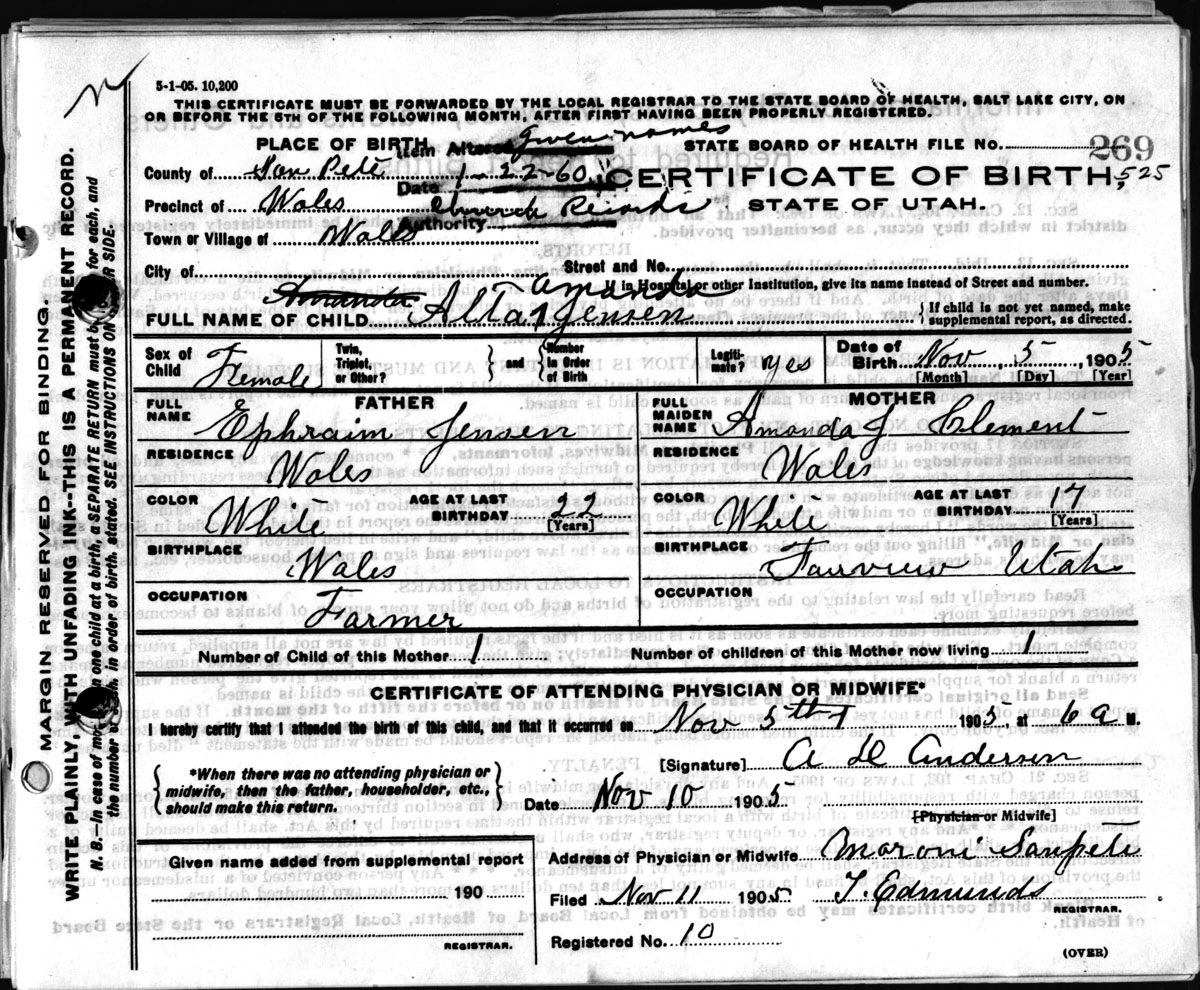 5-1-05. 10,200
THIS CERTIFICATE MUST BE FORWARDED BY THE LOCAL REGISTRAR TO THE STATE BOARD OF HEALTH, SALT LAKE CITY, ON
OR BEFORE THE 5TH OF THE FOLLOWING MONTH, AFTER FIRST HAVING BEEN PROPERLY REGISTERED.
PLACE OF BIRTH
Item Altered Given names
STATE BOARD OF HEALTH FILE No. 269
County of San Pete
Date 1-22-60
CERTIFICATE OF BIRTH, 525
Precinct of Wales
Authority Church Records
STATE OF UTAH.
Town or Village of Wales
City of
Street and No.
If in Hospital or other Institution, give its name instead of Street and number.
Amanda
Amanda
FULL NAME OF CHILD Alta Jensen
{ If child is not yet named, make
supplemental report, as directed.
Sex of Child Female
Twin, Triplet, or Other?
and
Number in Order of Birth
Legitimate? yes
Date of Birth Nov 5, 1905
[Month] [Day] [Year]
FATHER
FULL NAME Ephraim Jensen
MOTHER
FULL MAIDEN NAME Amanda J Clement
RESIDENCE Wales
RESIDENCE Wales
COLOR White
AGE AT LAST BIRTHDAY 22
[Years]
COLOR White
AGE AT LAST BIRTHDAY 17
[Years]
BIRTHPLACE Wales
BIRTHPLACE Fairview Utah
OCCUPATION Farmer
OCCUPATION
Number of Child of this Mother 1
Number of children of this Mother now living 1
CERTIFICATE OF ATTENDING PHYSICIAN OR MIDWIFE*
I hereby certify that I attended the birth of this child, and that it occurred on Nov 5th 1905 at 6 a M.
[Signature] A D Anderson
{ *When there was no attending physician or
midwife, then the father, householder, etc.,
should make this return. }
Date Nov 10 1905
[Physician or Midwife]
Given name added from supplemental report
190
REGISTRAR.
Address of Physician or Midwife Moroni Sanpete
Filed Nov 11 1905 T. Edmunds
REGISTRAR.
Registered No. 10
(OVER)
MARGIN RESERVED FOR BINDING.
WRITE PLAINLY, WITH UNFADING INK--THIS IS A PERMANENT RECORD.
N. B.--In case of more than one child at birth, a SEPARATE RETURN must be for each, and
the number of each, in order of birth, stated. SEE INSTRUCTIONS ON OTHER SIDE.